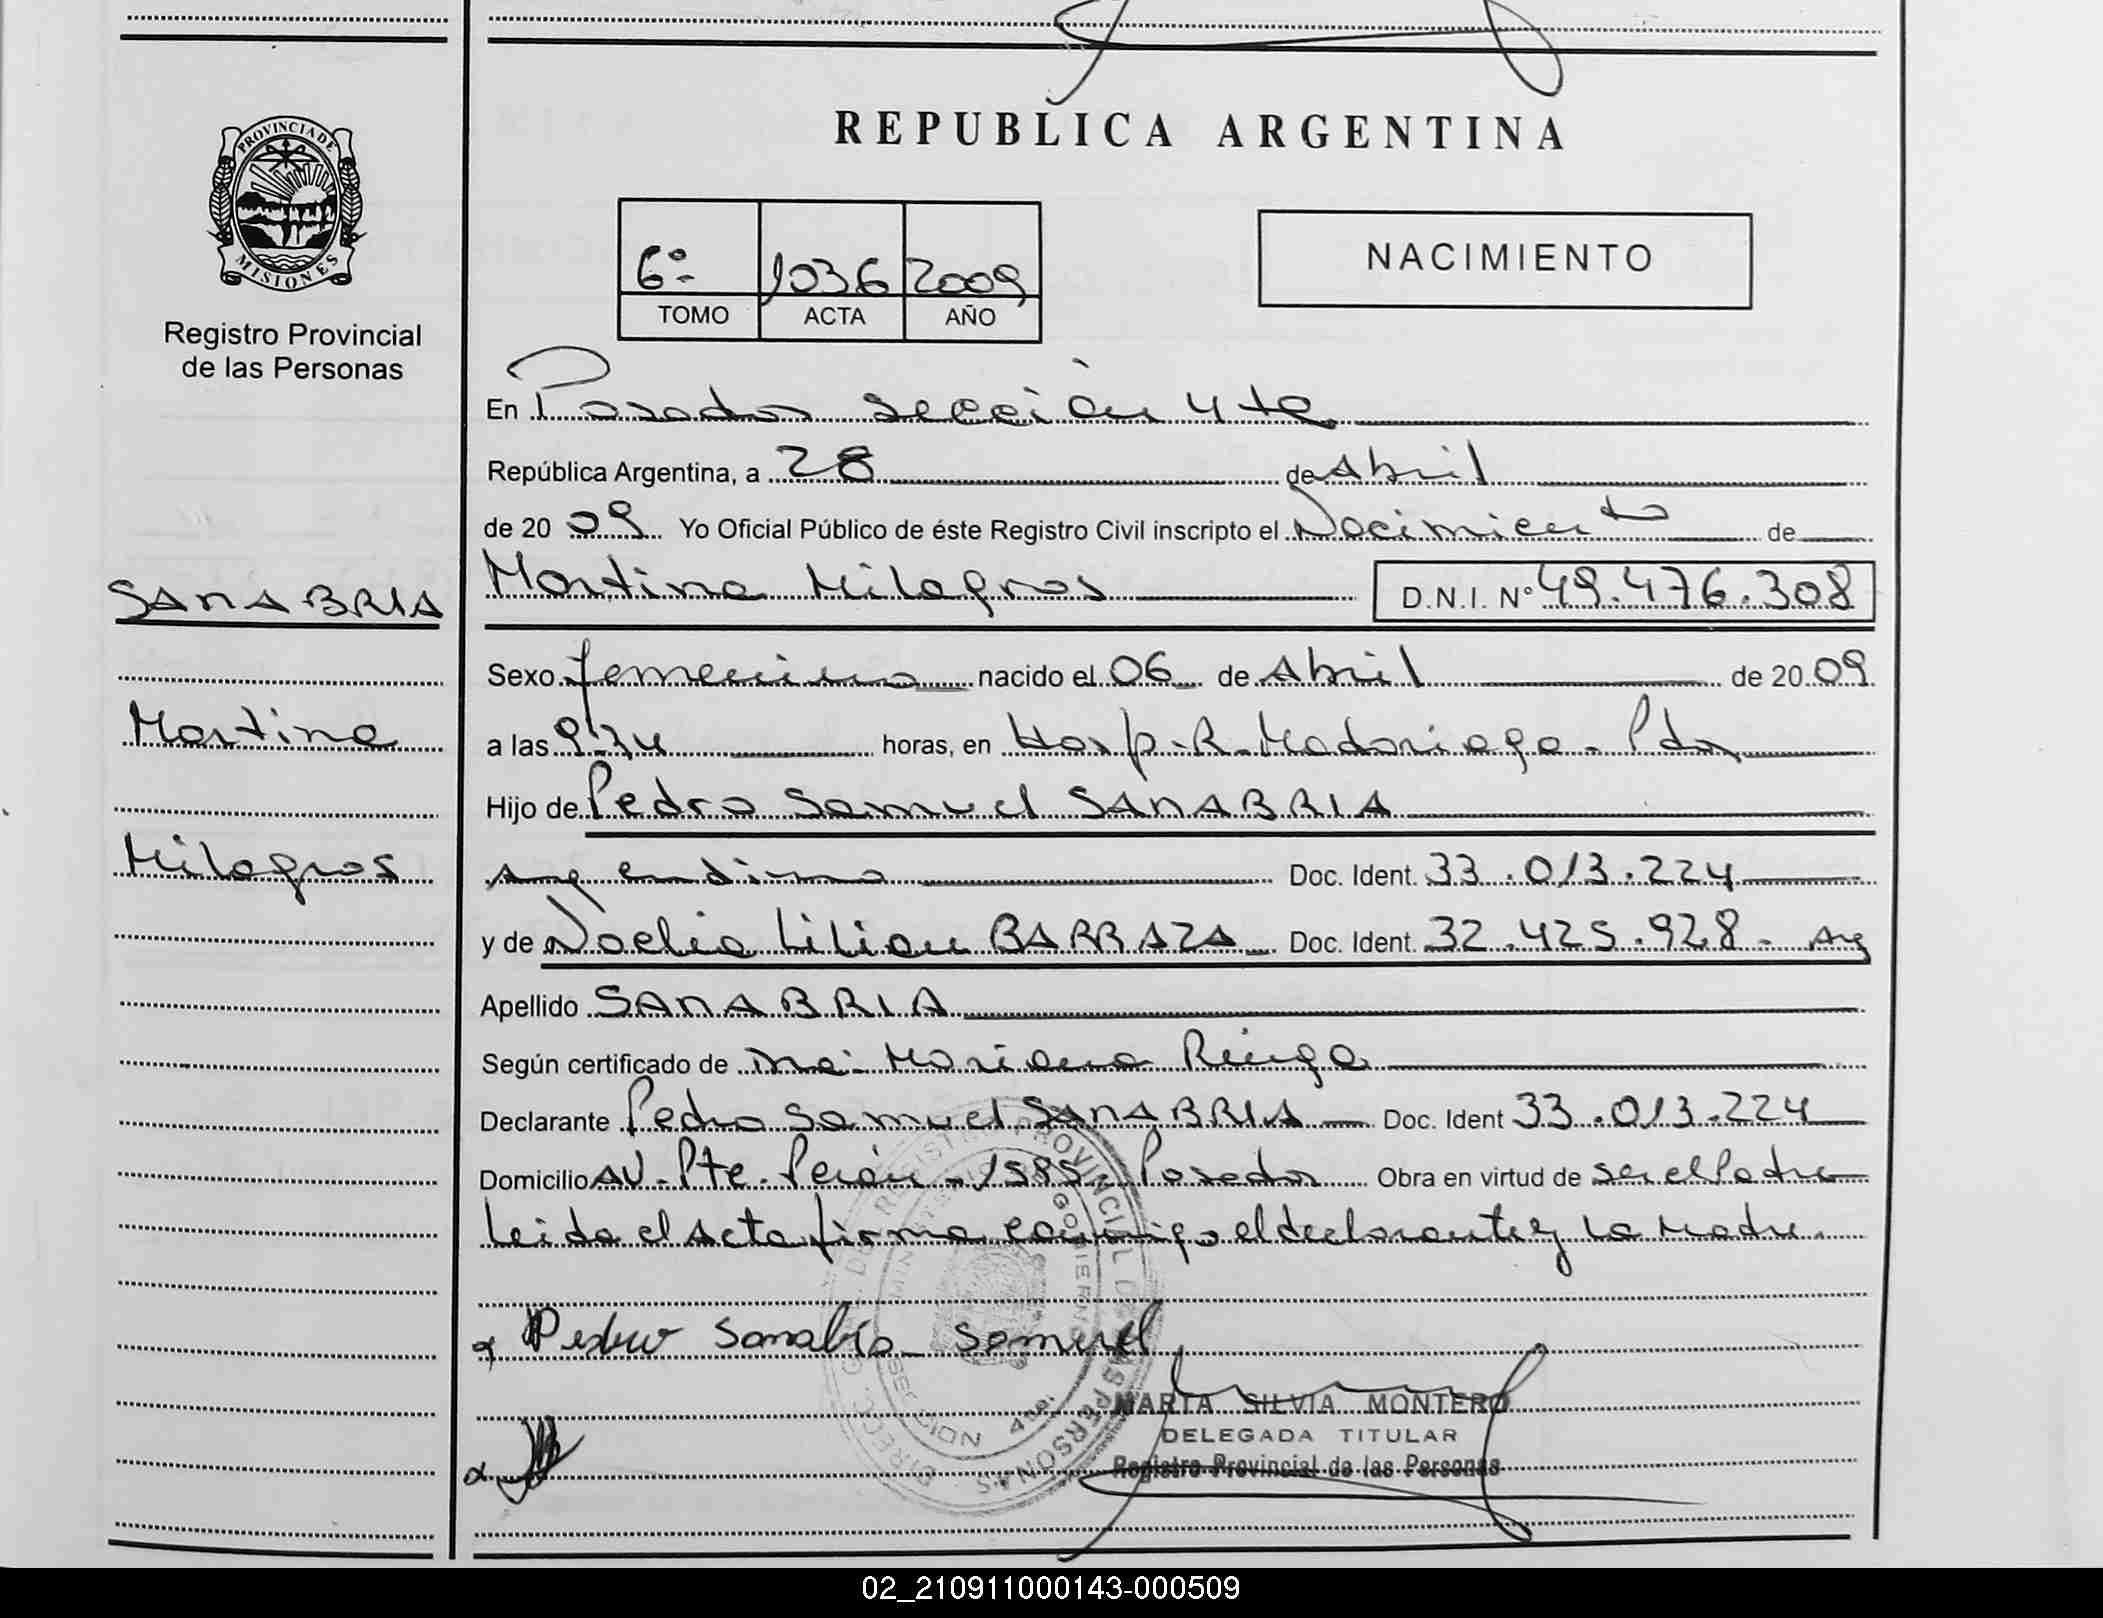 REPUBLICA ARGENTINA
PROVINCIA DE
MISIONES
Registro Provincial
de las Personas
6º 1036 2009
TOMO ACTA AÑO
NACIMIENTO
En Posadas sección 4ta
República Argentina, a 28 de Abril
de 2009 Yo Oficial Público de éste Registro Civil inscripto el Nacimiento de
Martina Milagros D.N.I. Nº 49.476.308
SANABRIA
Martina
Milagros
Sexo femenino nacido el 06 de Abril de 2009
a las 9:34 horas, en Hosp. R. Madariaga. Pdas
Hijo de Pedro Samuel SANABRIA
argentino Doc. Ident. 33.013.224
y de Noelia Lilian BARRAZA Doc. Ident. 32.425.928. Arg
Apellido SANABRIA
Según certificado de Mariana
Declarante Pedro Samuel SANABRIA Doc. Ident 33.013.224
Domicilio AV. Pte. Perón - 1585 Posadas Obra en virtud de ser el Padre
Leida el Acta firma conmigo el declarante y la Madre.
Pedro Sanabria Samuel
MARTA SILVIA MONTERO
DELEGADA TITULAR
Registro Provincial de las Personas
02_210911000143-000509